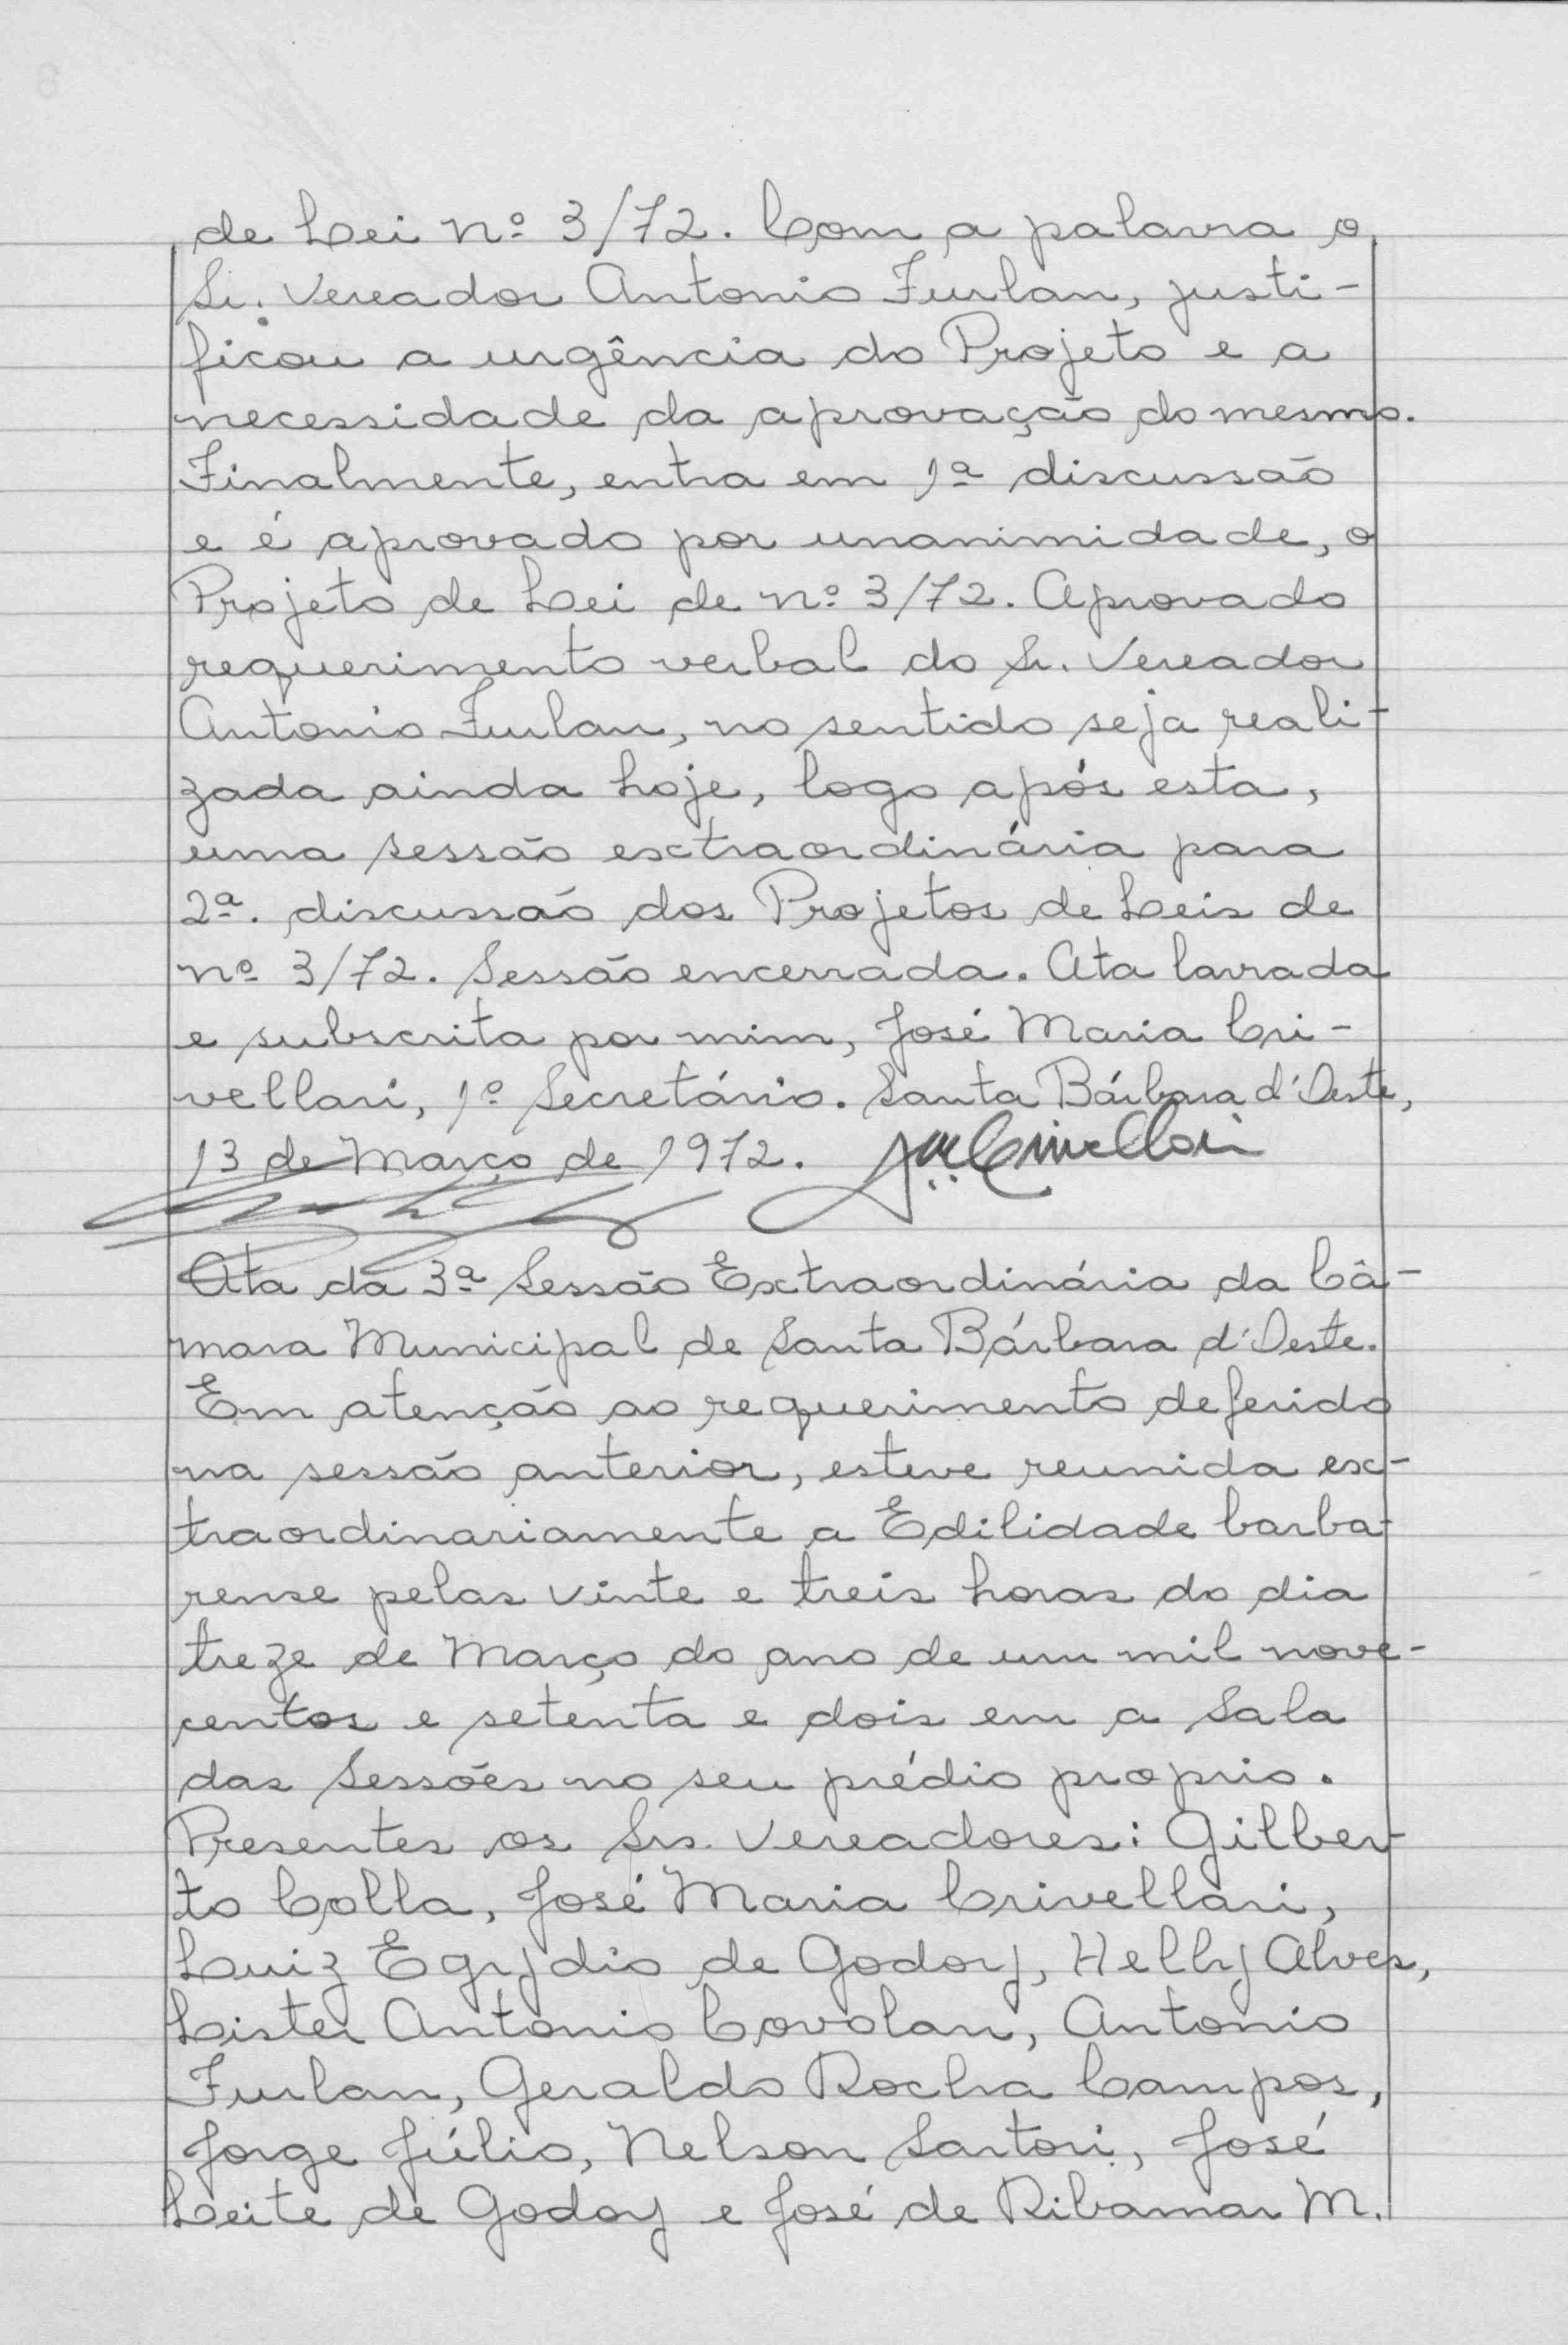 de Lei nº 3/72. Com a palavra o
Sr. Vereador Antonio Furlan, justi-
ficou a urgência do Projeto e a
necessidade da aprovação do mesmo.
Finalmente, entra em 1ª discussão
e é aprovado por unanimidade, o
Projeto de Lei de nº 3/72. Aprovado
requerimento verbal do Sr. Vereador
Antonio Furlan, no sentido seja reali-
zada ainda hoje, logo após esta,
uma sessão extraordinária para
2ª. discussão dos Projetos de Leis de
nº 3/72. Sessão encerrada. Ata lavrada
e subscrita por mim, José Maria Cri-
vellari, 1º Secretário. Santa Bárbara d'Oeste,
13 de Março de 1972. JMCrivellari
Ata da 3ª Sessão Extraordinária da Câ-
mara Municipal de Santa Bárbara d'Oeste.
Em atenção ao requerimento deferido
na sessão anterior, esteve reunida ex-
traordinariamente a Edilidade barba-
rense pelas vinte e treis horas do dia
treze de Março do ano de um mil nove-
centos e setenta e dois em a Sala
das Sessões no seu prédio proprio.
Presentes os Srs. Vereadores: Gilber-
to Colla, José Maria Crivellari,
Luiz Egydio de Godoy, Helly Alves,
Lister Antonio Covolan, Antonio
Furlan, Geraldo Rocha Campos,
Jorge Júlio, Nelson Sartori, José
Leite de Godoy e José de Ribamar M.